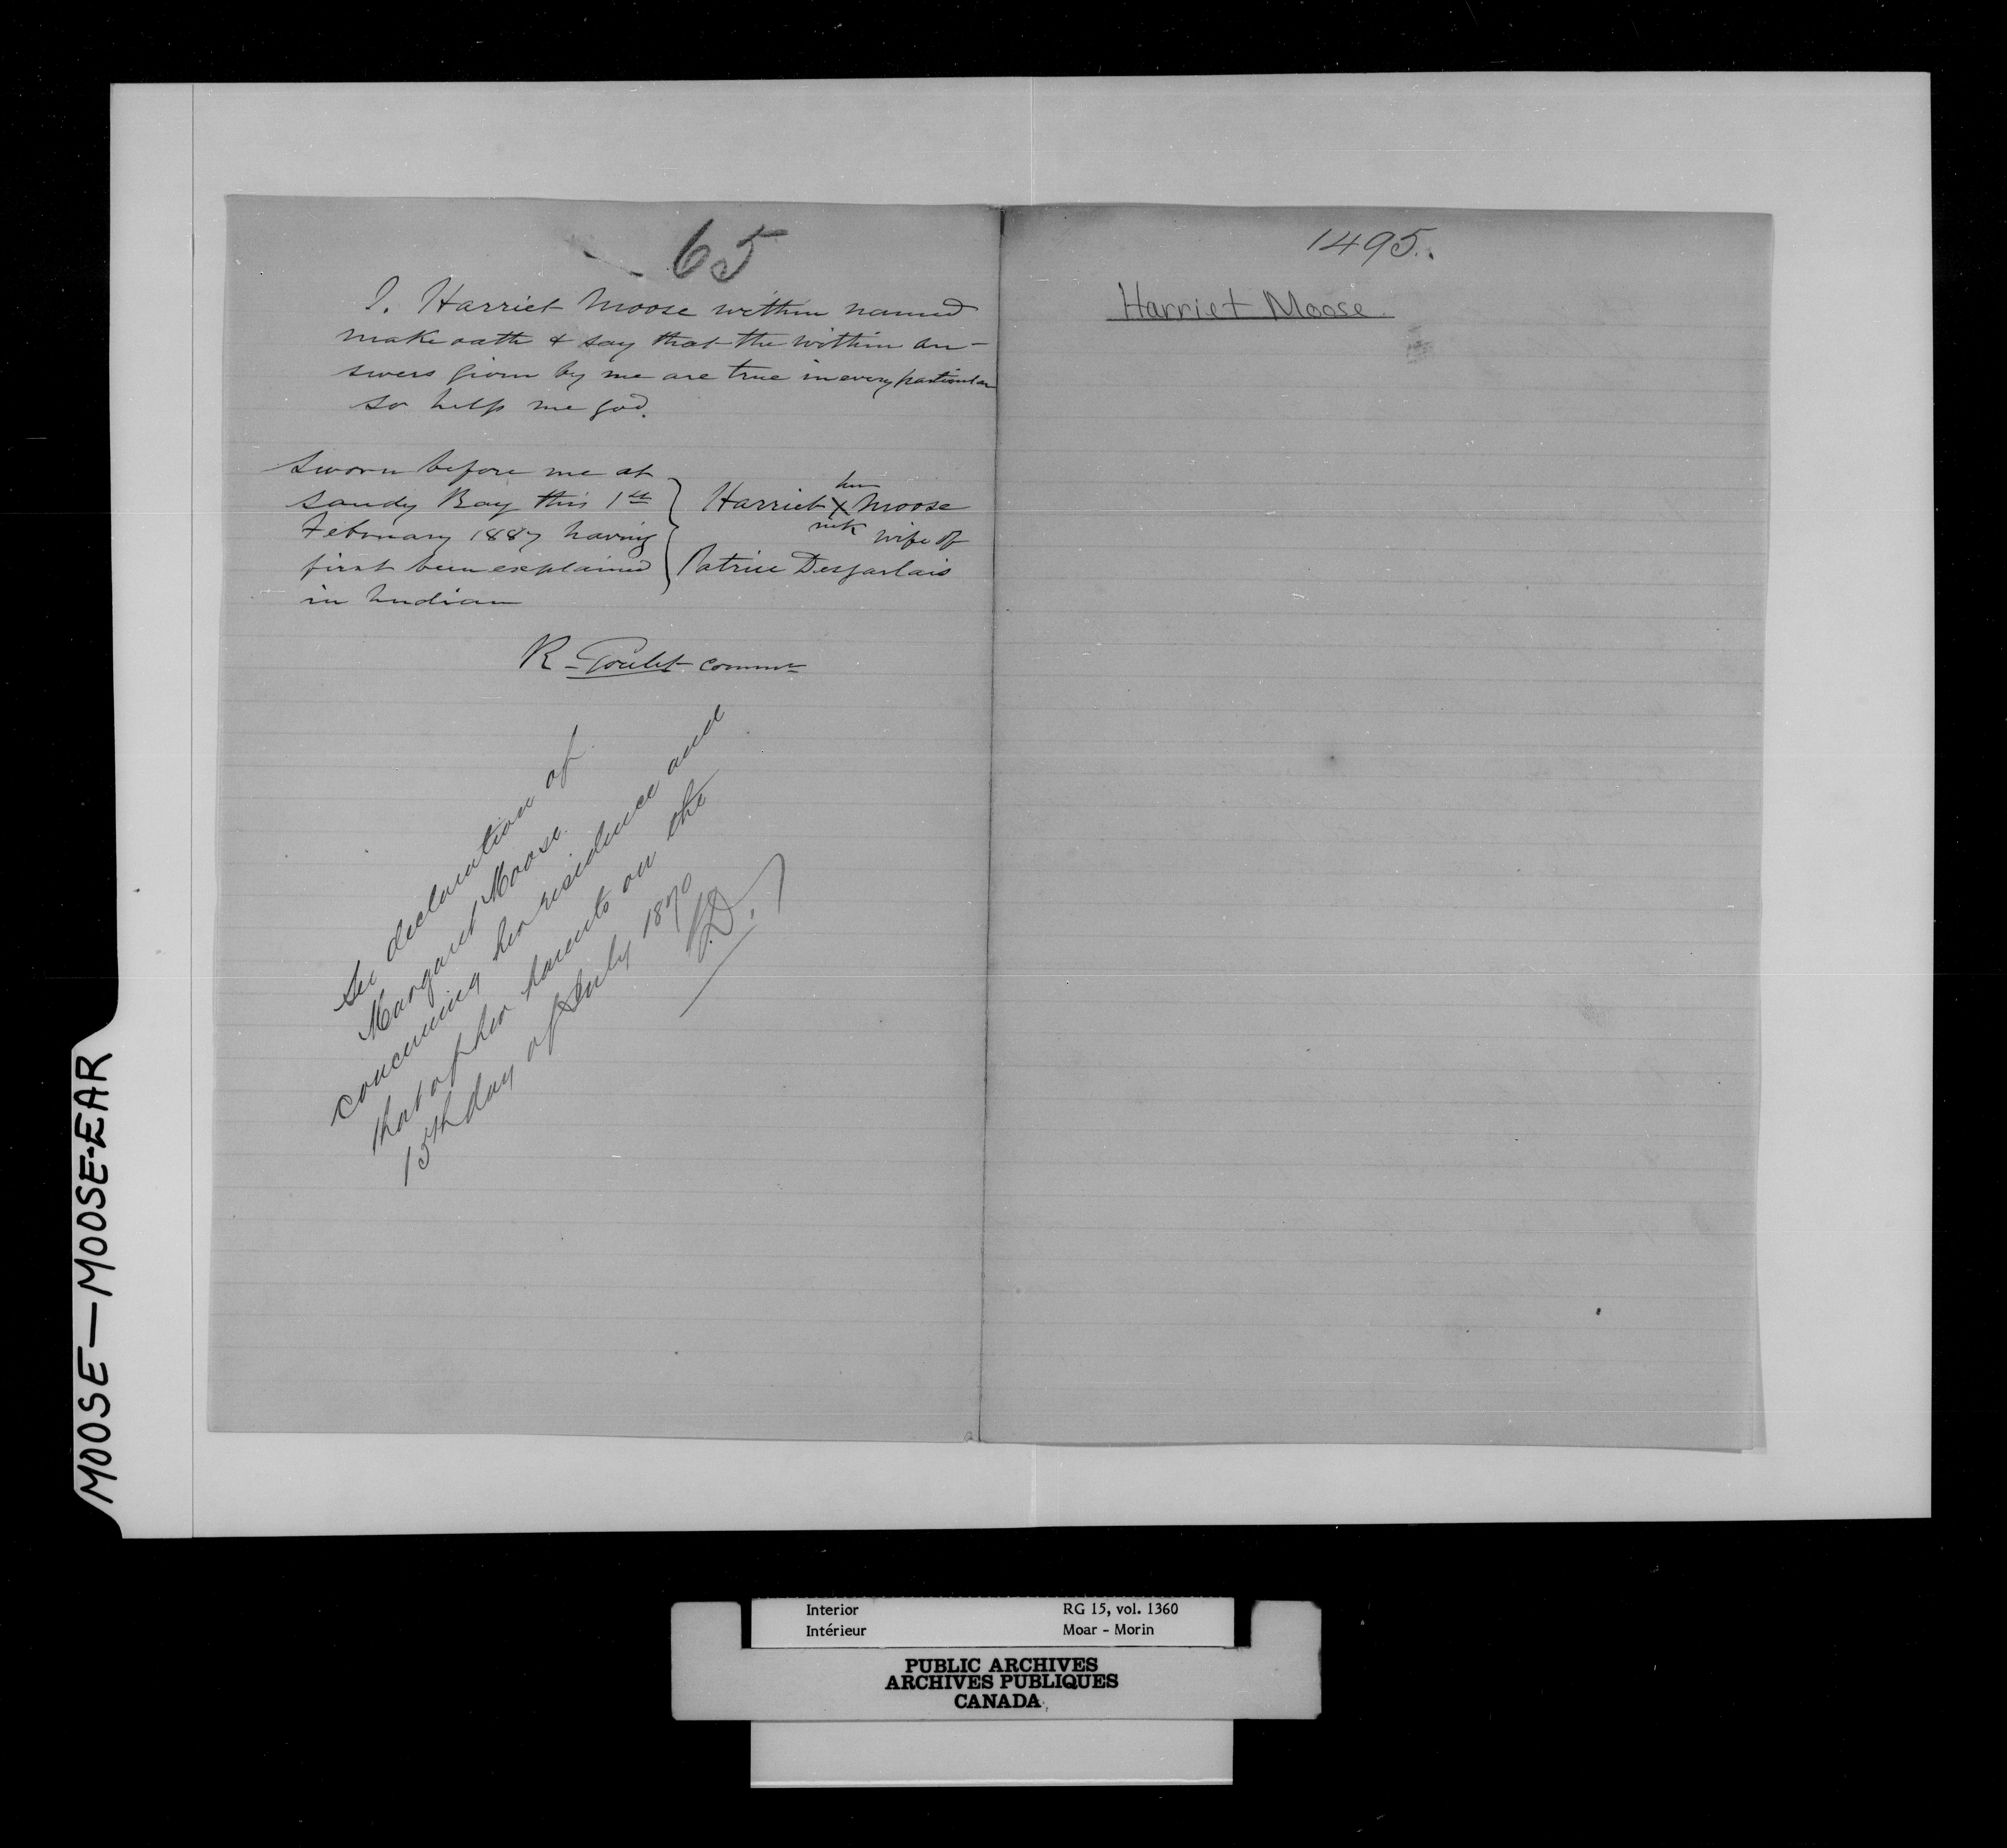 65
I. Harriet Moose within named
make oath & say that the within an-
swers given by me are true in every particular
so help me god.
Sworn before me at
Sandy Bay this 1st
February 1887 having
first been explained
in Indian
her
Harriet X Moose
mrk
wife of
Patrice Desjarlais
R. Goulet commr
See declaration of
Margaret Moose
concerning her residence and
that of her parents on the
15th day of July 1870
1495.
Harriet Moose
MOOSE — MOOSE-EAR
Interior
Intérieur
RG 15, vol. 1360
Moar - Morin
PUBLIC ARCHIVES
ARCHIVES PUBLIQUES
CANADA